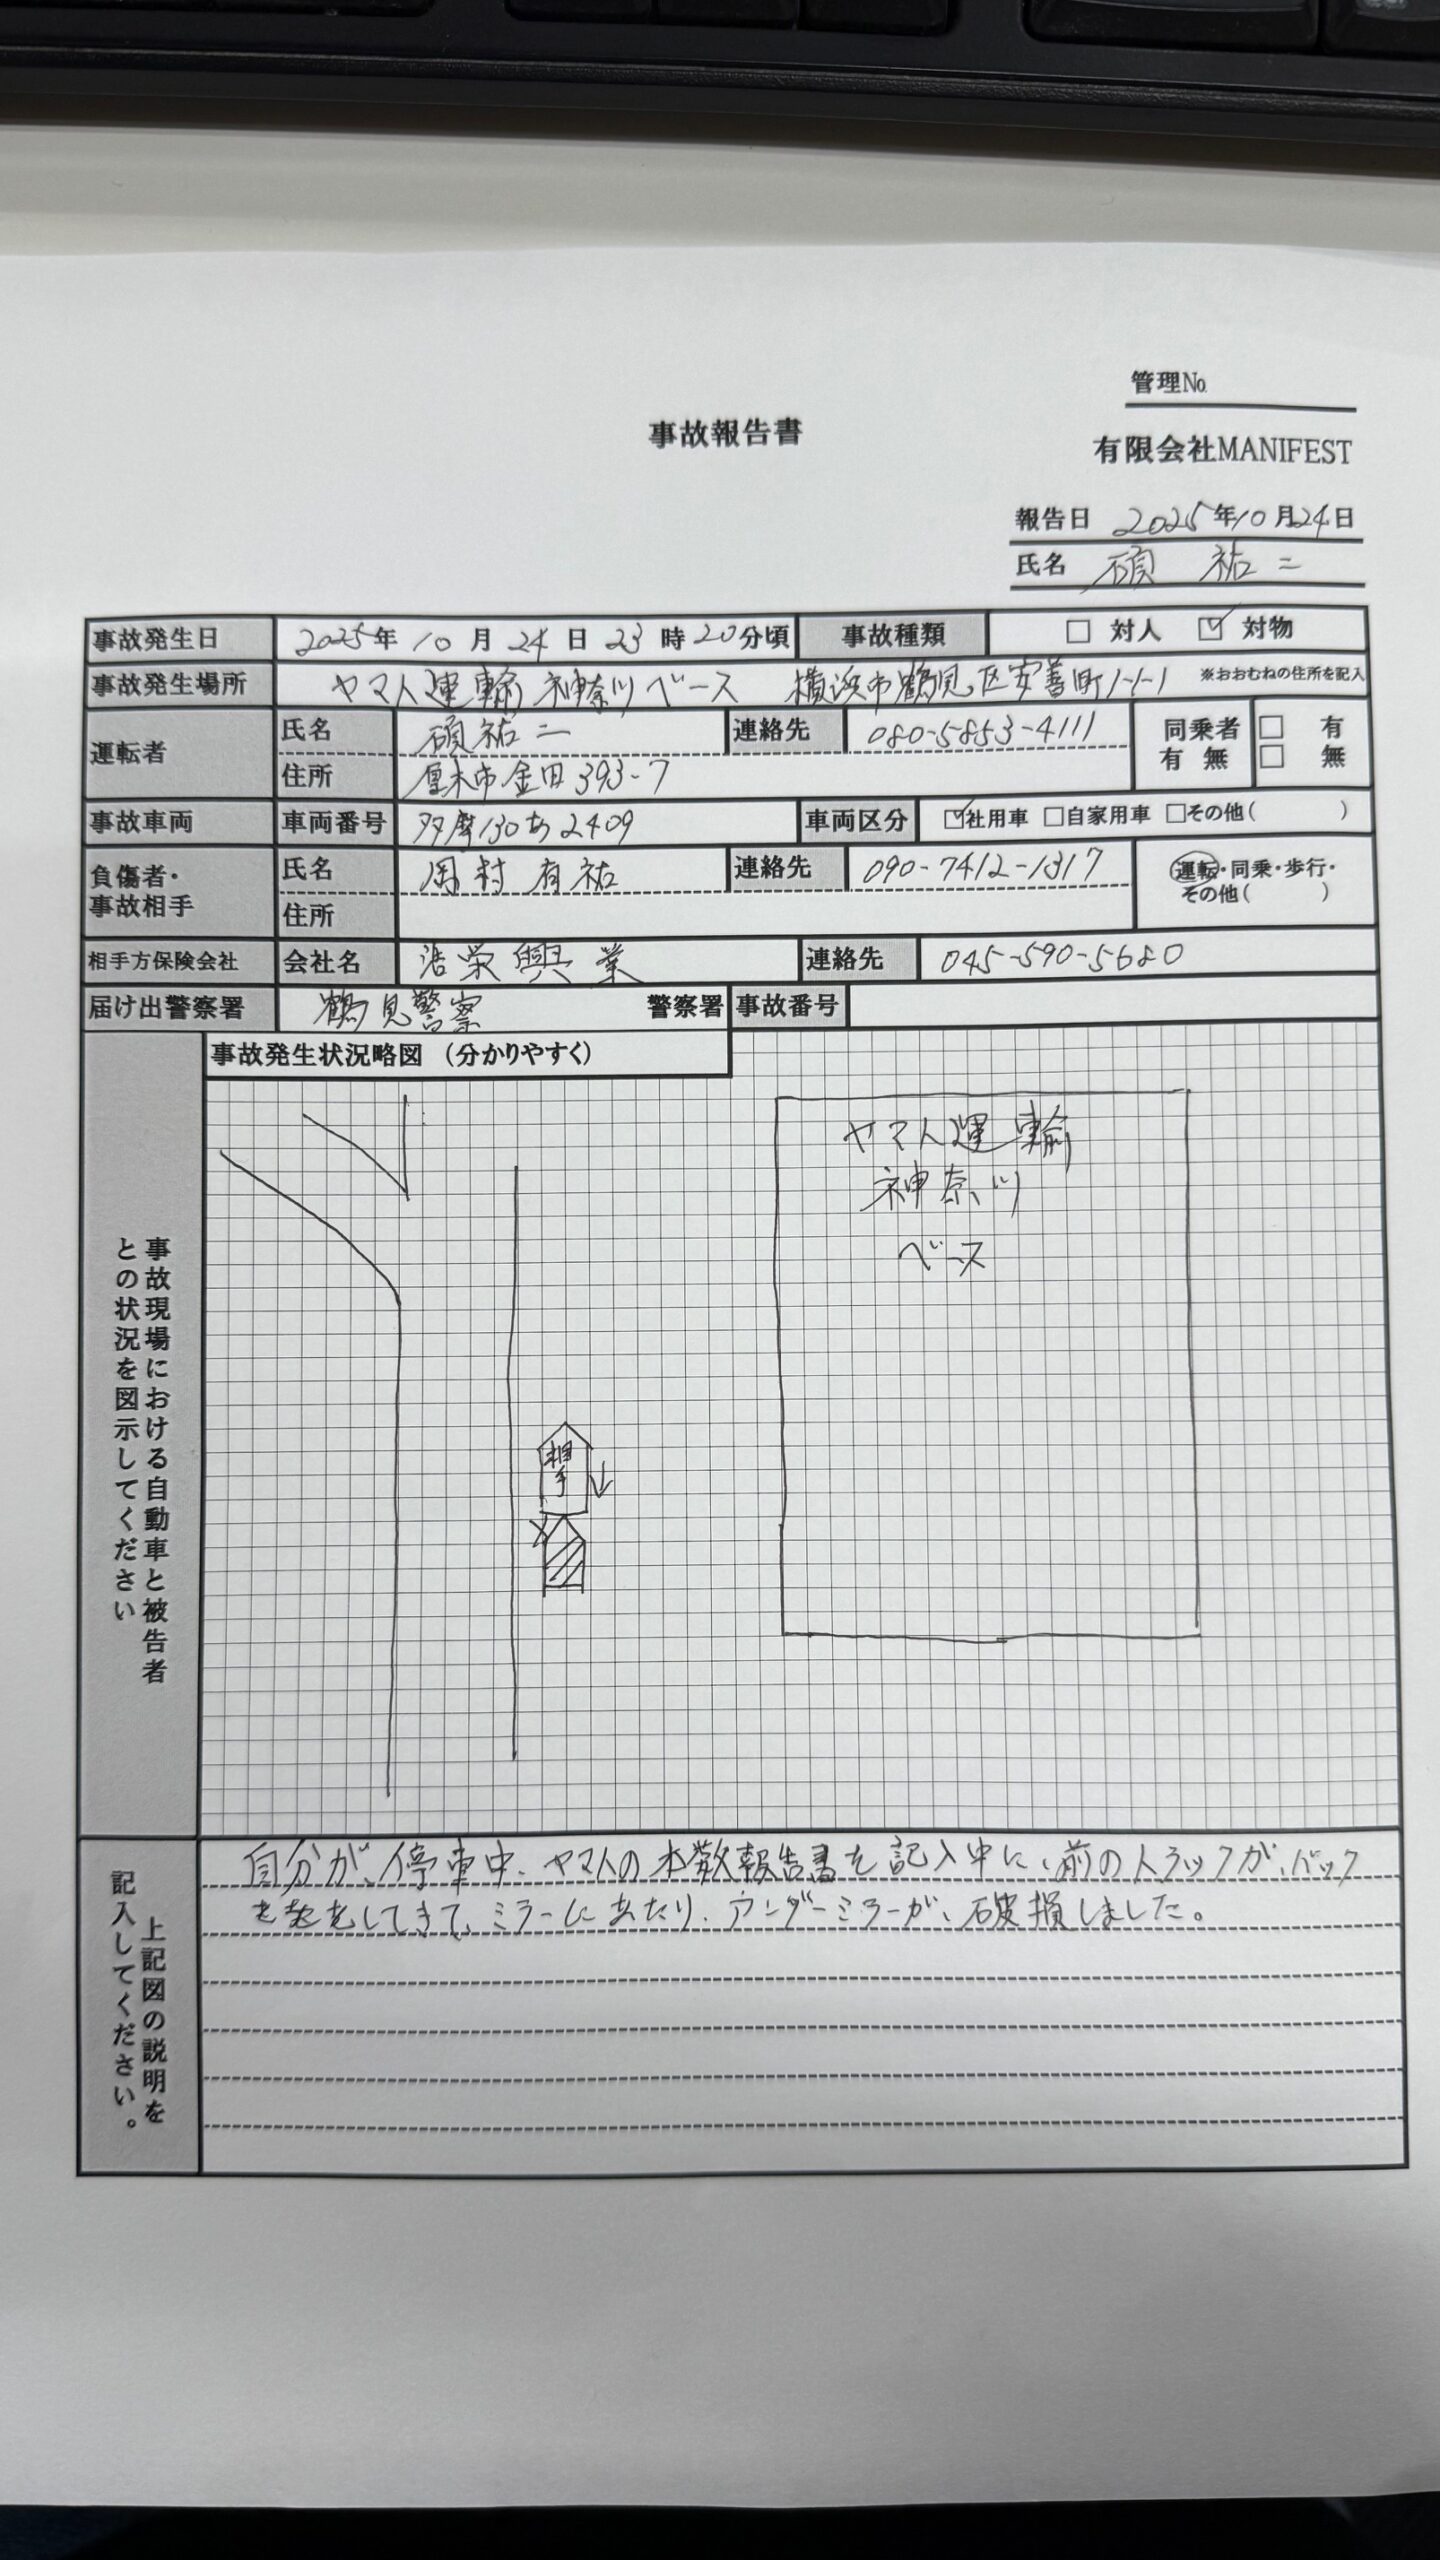 管理No.
事故報告書
有限会社MANIFEST
報告日 2025年10月24日
氏名 碩 祐二
事故発生日 2025年 10月 24日 23時 20分頃 事故種類 □ 対人 ☑ 対物
事故発生場所 ヤマト運輸 神奈川ベース 横浜市鶴見区安善町1-1-1 ※おおむねの住所を記入
運転者 氏名 碩祐二 連絡先 080-5853-4111 同乗者 有 無 □ 有 □ 無
住所 厚木市金田393-7
事故車両 車両番号 多摩130あ2409 車両区分 ☑社用車 □自家用車 □その他( )
負傷者・事故相手 氏名 岡村 有祐 連絡先 090-7412-1317 運転・同乗・歩行・その他( )
住所
相手方保険会社 会社名 浩栄興業 連絡先 045-590-5680
届け出警察署 鶴見警察 警察署 事故番号
事故発生状況略図 (分かりやすく)
事故現場における自動車と被告者との状況を図示してください
ヤマト運輸
神奈川
ベース
相手
上記図の説明を記入してください。
自分が、停車中、ヤマトの本数報告書を記入中に、前のトラックが、バック
をしてきて、ミラーにあたり、アンダーミラーが、破損しました。